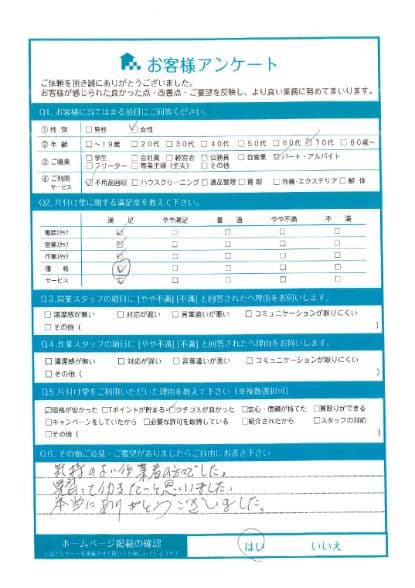 お客様アンケート
ご依頼を頂き誠にありがとうございました。
お客様が感じられた良かった点・改善点・ご要望を反映し、より良い業務に努めてまいります。
Q1. お客様に当てはまる項目にご回答ください。
① 性 別 □男性 ☑女性
② 年 齢 □～19歳 □20代 □30代 □40代 □50代 □60代 ☑70代 □80歳～
③ ご職業 □学生 □会社員 □経営者 □公務員 □自営業 ☑パート・アルバイト
□フリーター □専業主婦（主夫） □その他
④ ご利用サービス ☑不用品回収 □ハウスクリーニング □遺品整理 □買取 □外構・エクステリア □解体
Q2. 片付け堂に関する満足度を教えて下さい。
満 足 やや満足 普 通 やや不満 不 満
電話スタッフ ☑ □ □ □ □
営業スタッフ ☑ □ □ □ □
作業スタッフ ☑ □ □ □ □
価 格 ☑ □ □ □ □
サービス ☑ □ □ □ □
Q3. 営業スタッフの項目に [やや不満] [不満] と回答されたへ理由をお伺いします。
□清潔感が無い □対応が遅い □言葉遣いが悪い □コミュニケーションが取りにくい
□その他 ( )
Q4. 作業スタッフの項目に [やや不満] [不満] と回答されたへ理由をお伺いします。
□清潔感が無い □対応が遅い □言葉遣いが悪い □コミュニケーションが取りにくい
□その他 ( )
Q5. 片付け堂をご利用いただいた理由を教えて下さい（※複数選択可）
☑価格が安かった □Tポイントが貯まる ☑クチコミが良かった □安心・信頼が持てた □買取りができる
□キャンペーンをしていたから □必要な許可を取得している □紹介されたから □スタッフの対応
□その他 ( )
Q6. その他ご意見・ご要望がありましたらご自由にお書き下さい
気持のよい作業者の方でした。
思いました。
本当にありがとうございました。
ホームページ掲載の確認 はい いいえ